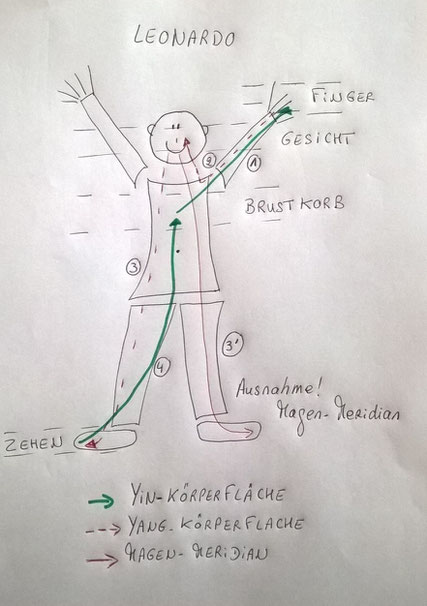 LEONARDO
FINGER
GESICHT
2 1
BRUSTKORB
3
3'
4
Ausnahme!
Magen-Meridian
ZEHEN
YIN-KÖRPERFLÄCHE
YANG-KÖRPERFLÄCHE
MAGEN-MERIDIAN